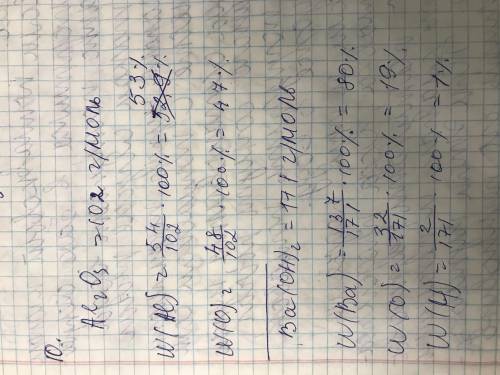 10.
Al₂O₃ = 102 г/моль
53%
W(Al) = 54/102 · 100% = %
W(O) = 48/102 · 100% = 47%
Ba(OH)₂ = 171 г/моль
W(Ba) = 137/171 · 100% = 80%
W(O) = 32/171 · 100% = 19%
W(H) = 2/171 · 100% = 1%